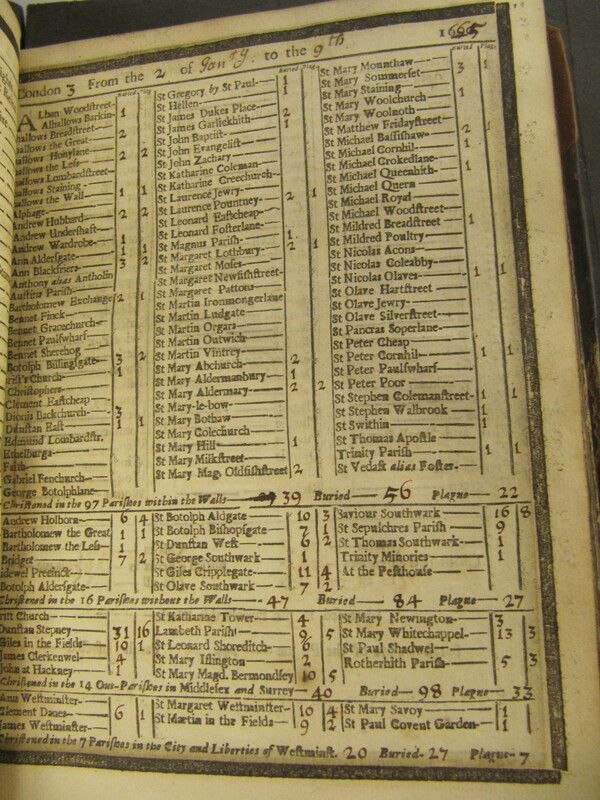 London 3 From the 2 of Janry. to the 9th 1665
Buried Plag.
Alban Woodstreet 1
Alhallows Barkin
hallows Breadstreet 2
hallows the Great
hallows Honylane 2 2
hallows the Less
hallows Lombardstreet
hallows Staining
hallows the Wall 1 1
Alphage
Andrew Hubbard 2 2
Andrew Undershaft
Andrew Wardrobe 1
Ann Aldersgate 1 1
Ann Blackfriers 3 2
Anthony alias Antholin
Austins Parish
Bartholomew Exchange 2 1
Bennet Finck
Bennet Gracechurch
Bennet Paulswharf
Bennet Sherehog
Botolph Billingsgate 3 2
rist's Church 1
Christophers
Clement Eastcheap
Dionis Backchurch 3
Dunstan East 1
Edmund Lombardstr.
Ethelburga
Faith
Gabriel Fenchurch
George Botolphlane
Buried Plag.
St Gregory by St Paul 1
St Hellen 1
St James Dukes Place 2
St James Garlickhith 1
St John Baptist
St John Evangelist
St John Zachary
St Katharine Coleman
St Katharine Creechurch
St Laurence Jewry 2 1
St Laurence Pountney
St Leonard Eastcheap
St Leonard Fosterlane
St Magnus Parish 1
St Margaret Lothbury 2 1
St Margaret Moses
St Margaret Newfishstreet
St Margaret Pattons
St Martin Ironmongerlane
St Martin Ludgate
St Martin Orgars
St Martin Outwich
St Martin Vintrey
St Mary Abchurch 2
St Mary Aldermanbury 1
St Mary Aldermary 2 2
St Mary-le-bow
St Mary Bothaw
St Mary Colechurch
St Mary Hill 1
St Mary Milkstreet
St Mary Mag. Oldfishstreet 2
Buried Plag.
St Mary Mounthaw
St Mary Sommerset 3 1
St Mary Staining
St Mary Woolchurch
St Mary Woolnoth 1
St Matthew Fridaystreet
St Michael Bassishaw 2
St Michael Cornhil 1
St Michael Crokedlane
St Michael Queenhith 1
St Michael Quern
St Michael Royal
St Michael Woodstreet
St Mildred Breadstreet 1
St Mildred Poultry
St Nicolas Acons
St Nicolas Coleabby
St Nicolas Olaves 1 1
St Olave Hartstreet
St Olave Jewry
St Olave Silverstreet
St Pancras Soperlane
St Peter Cheap
St Peter Cornhil 1 1
St Peter Paulswharf
St Peter Poor
St Stephen Colemanstreet 1 1
St Stephen Walbrook 1
St Swithin 1
St Thomas Apostle
Trinity Parish 1 1
St Vedast alias Foster
Christened in the 97 Parishes within the Walls 39 Buried 56 Plague 22
Andrew Holborn 6 4
Bartholomew the Great 1 1
Bartholomew the Less 1
Bridget 7 2
idewel Precinct
Botolph Aldersgate
St Botolph Aldgate 10 3
St Botolph Bishopsgate 7 1
St Dunstan West 6 2
St George Southwark 1
St Giles Cripplegate 11 4
St Olave Southwark 7 2
Saviour Southwark 16 8
St Sepulchres Parish 9
St Thomas Southwark 1
Trinity Minories 1
At the Pesthouse
Christened in the 16 Parishes without the Walls 47 Buried 84 Plague 27
rist Church
Dunstan Stepney 31 16
Giles in the Fields 10 1
James Clerkenwel 4
John at Hackney 1
St Katharine Tower 4
Lambeth Parish 9 5
St Leonard Shoreditch 6
St Mary Islington 2
St Mary Magd. Bermondsey 10 5
St Mary Newington 3
St Mary Whitechappel 13 3
St Paul Shadwel
Rotherhith Parish 5 3
Christened in the 14 Out-Parishes in Middlesex and Surrey 40 Buried 98 Plague 33
Ann Westminster
Clement Danes 6 1
James Westminster
St Margaret Westminster 10 4
St Martin in the Fields 9 2
St Mary Savoy 1
St Paul Covent Garden 1
Christened in the 7 Parishes in the City and Liberties of Westminst. 20 Buried 27 Plague 7